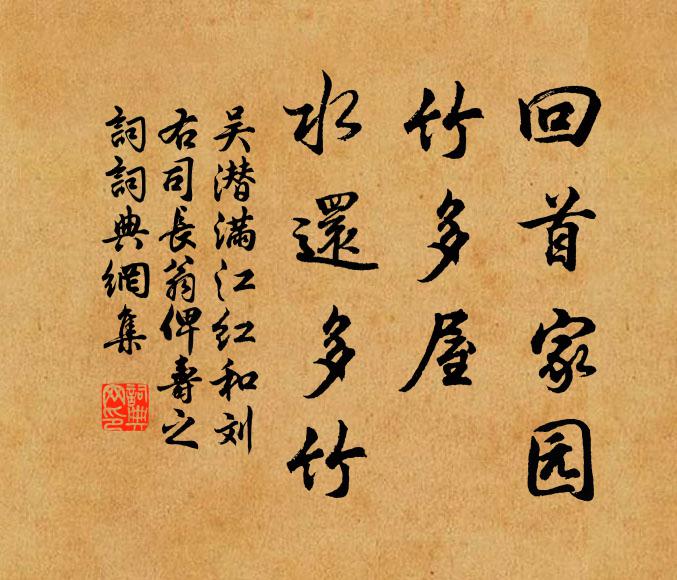 回首家园
竹多屋
水還多竹
吴潜满江红和刘
右司長翁俾壽之
詞詞典網集
詞典网印